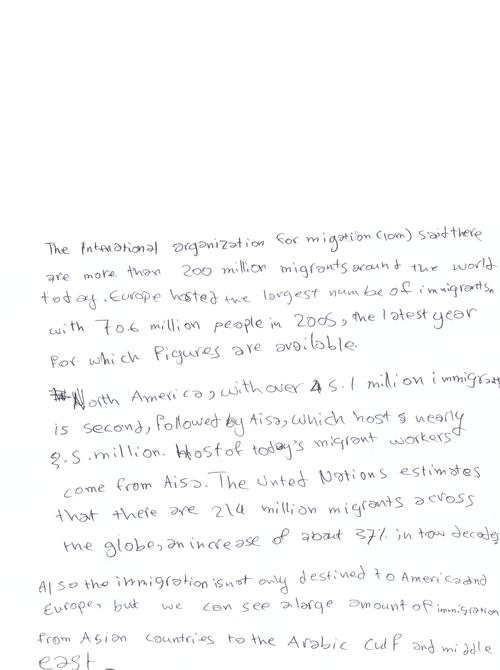 The Intenational organization for migation (iom) said there
are more than 200 million migrants around the world
today. Europe hosted the largest numbe of immigrants,
with 70.6 million people in 2005, the latest year
for which figures are available.
North America, with over 45.1 million immigrants
is second, followed by Aisa, which hosts nearly
3.5.million. Most of today's migrant workers
come from Aisa. The Unted Nations estimates
that there are 214 million migrants across
the globe, an increase of about 37% in tow decades
Also the immigration isnot only destined to America and
Europe, but we can see a large amount of immigration
from Asian countries to the Arabic Gulf and middle
east.